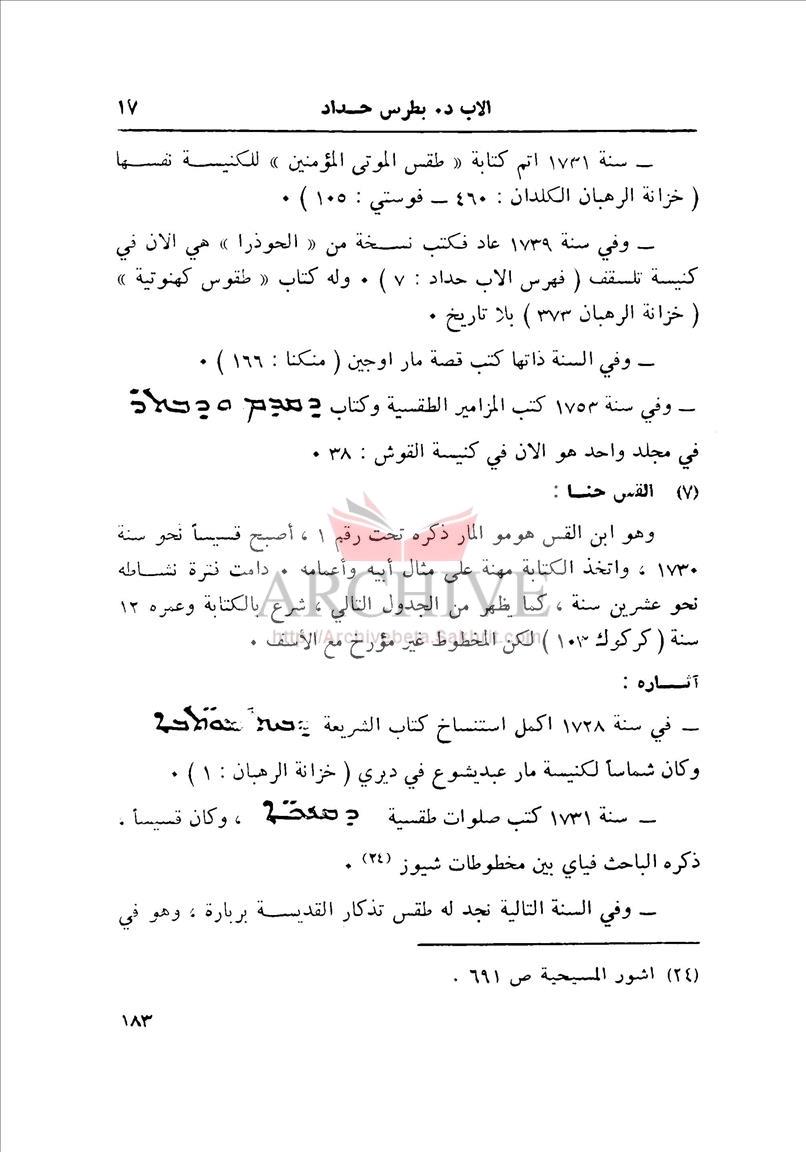 الاب د. بطرس حـداد ١٧
ــ سنة ١٧٣١ اتم كتابة « طقس الموتى المؤمنين » للكنيسة نفسها
( خزانة الرهبان الكلدان : ٤٦٠ ــ فوستي : ١٠٥ ) .
ــ وفي سنة ١٧٣٩ عاد فكتب نسخة من « الحوذرا » هي الان في
كنيسة تلسقف ( فهرس الاب حداد : ٧ ) . وله كتاب « طقوس كهنوتية »
( خزانة الرهبان ٣٧٣ ) بلا تاريخ .
ــ وفي السنة ذاتها كتب قصة مار اوجين ( منكنا : ١٦٦ ) .
ــ وفي سنة ١٧٥٣ كتب المزامير الطقسية وكتاب ܕܩܕܡ ܘܕܒܬܪ
في مجلد واحد هو الان في كنيسة القوش : ٣٨ .
(٧) القس حنـا :
وهو ابن القس هومو المار ذكره تحت رقم ١ ، أصبح قسيساً نحو سنة
١٧٣٠ ، واتخذ الكتابة مهنة على مثال أبيه وأعمامه . دامت فترة نشاطه
نحو عشرين سنة ، كما يظهر من الجدول التالي ، شرع بالكتابة وعمره ١٢
سنة ( كركوك ١٠٣ ) لكن المخطوط غير مؤرخ مع الأسف .
آثـاره :
ــ في سنة ١٧٢٨ اكمل استنساخ كتاب الشريعة
وكان شماساً لكنيسة مار عبديشوع في ديري ( خزانة الرهبان : ١ ) .
ــ سنة ١٧٣١ كتب صلوات طقسية ، وكان قسيساً .
ذكره الباحث فياي بين مخطوطات شيوز (٢٤) .
ــ وفي السنة التالية نجد له طقس تذكار القديسة بربارة ، وهو في
(٢٤) اشور المسيحية ص ٦٩١ .
١٨٣
ARCHIVE
http://Archivebeta.Sakhrit.com